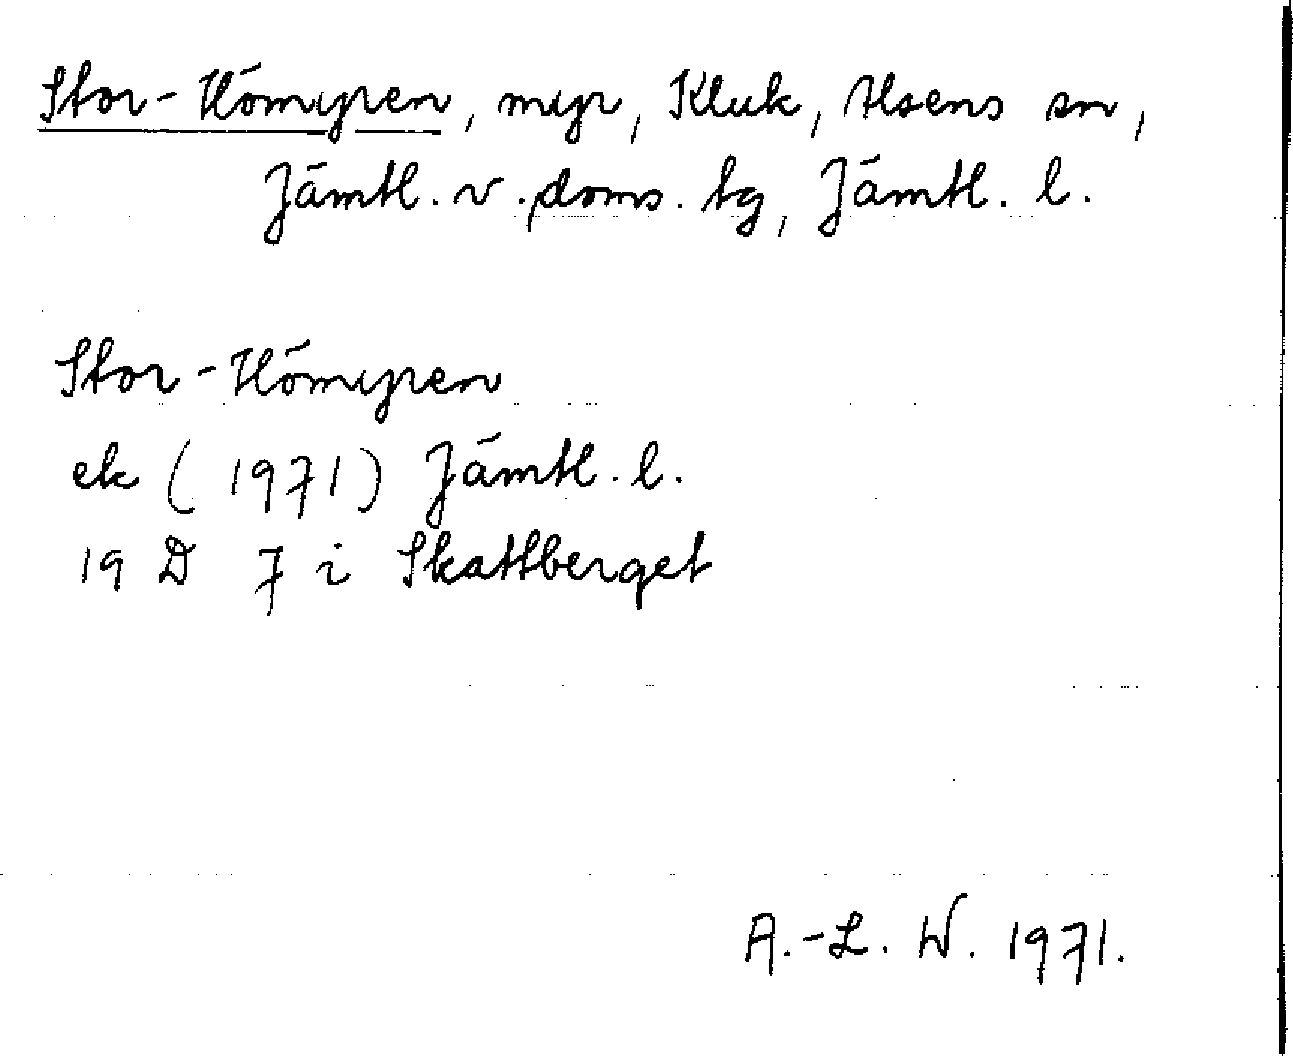 Stor-Hömyren, myr, Kluk, Hsens sn,
Jämtl. v. doms. tg, Jämtl. l.
Stor-Hömyren
ek (1971) Jämtl. l.
19 D 7 i Skattberget
A.-L. W. 1971.